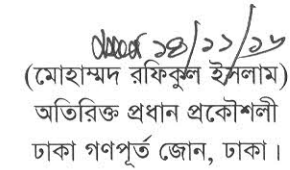 ১৪/১১/১৬
(মোহাম্মদ রফিকুল ইসলাম)
অতিরিক্ত প্রধান প্রকৌশলী
ঢাকা গণপূর্ত জোন, ঢাকা।